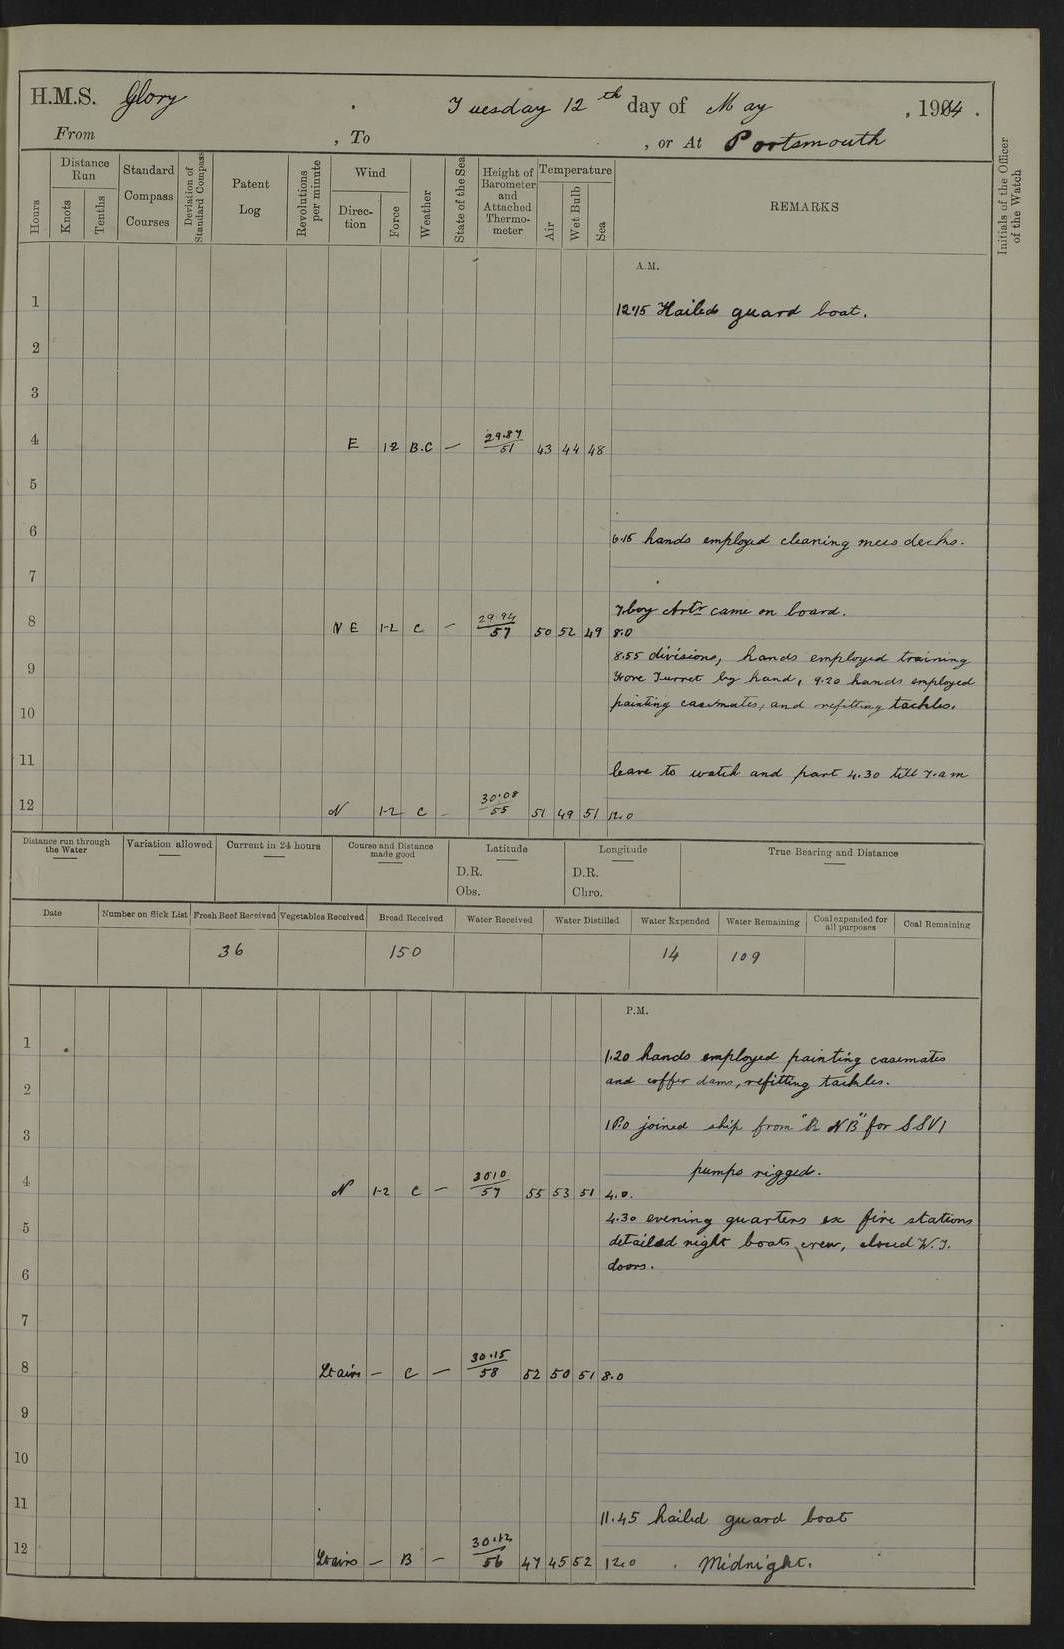 H.M.S. Glory Tuesday 12th day of May , 1914 .
From , To , or At Portsmouth
Hours Distance Run Knots Tenths Standard Compass Courses Deviation of Standard Compass Patent Log Revolutions per minute Wind Direction Force Weather State of the Sea Height of Barometer and Attached Thermometer Temperature Air Wet Bulb Sea REMARKS Initials of the Officer of the Watch
A.M.
1 12.15 Hailed guard boat.
2
3
4 E 1-2 B.C — 29.87/51 43 44 48
5
6 6.15 hands employed cleaning mess decks.
7
7 boy Artr came on board.
8 N E 1-2 C — 29.94/57 50 52 49 8.0
8.55 divisions, hands employed training
9 Fore Turret by hand, 9.20 hands employed
10 painting casemates, and refitting tackles.
11 leave to watch and part 4.30 till 7.am
12 N 1-2 C - 30.08/55 51 49 51 12.0
Distance run through the Water Variation allowed Current in 24 hours Course and Distance made good Latitude Longitude True Bearing and Distance
D.R. D.R.
Obs. Chro.
Date Number on Sick List Fresh Beef Received Vegetables Received Bread Received Water Received Water Distilled Water Expended Water Remaining Coal expended for all purposes Coal Remaining
36 150 14 109
P.M.
1 1.20 hands employed painting casemates
2 and coffer dams, refitting tackles.
3 1 P.O joined ship from "R NB" for SSV1
pumps rigged.
4 N 1-2 C — 30.10/57 55 53 51 4.0.
5 4.30 evening quarters ex fire stations
detailed night boats crew, closed W.T.
6 doors.
7
8 Lt airs — C — 30.15/58 52 50 51 8.0
9
10
11 11.45 hailed guard boat
12 Lt airs — B — 30.12/56 47 45 52 12.0 . Midnight.